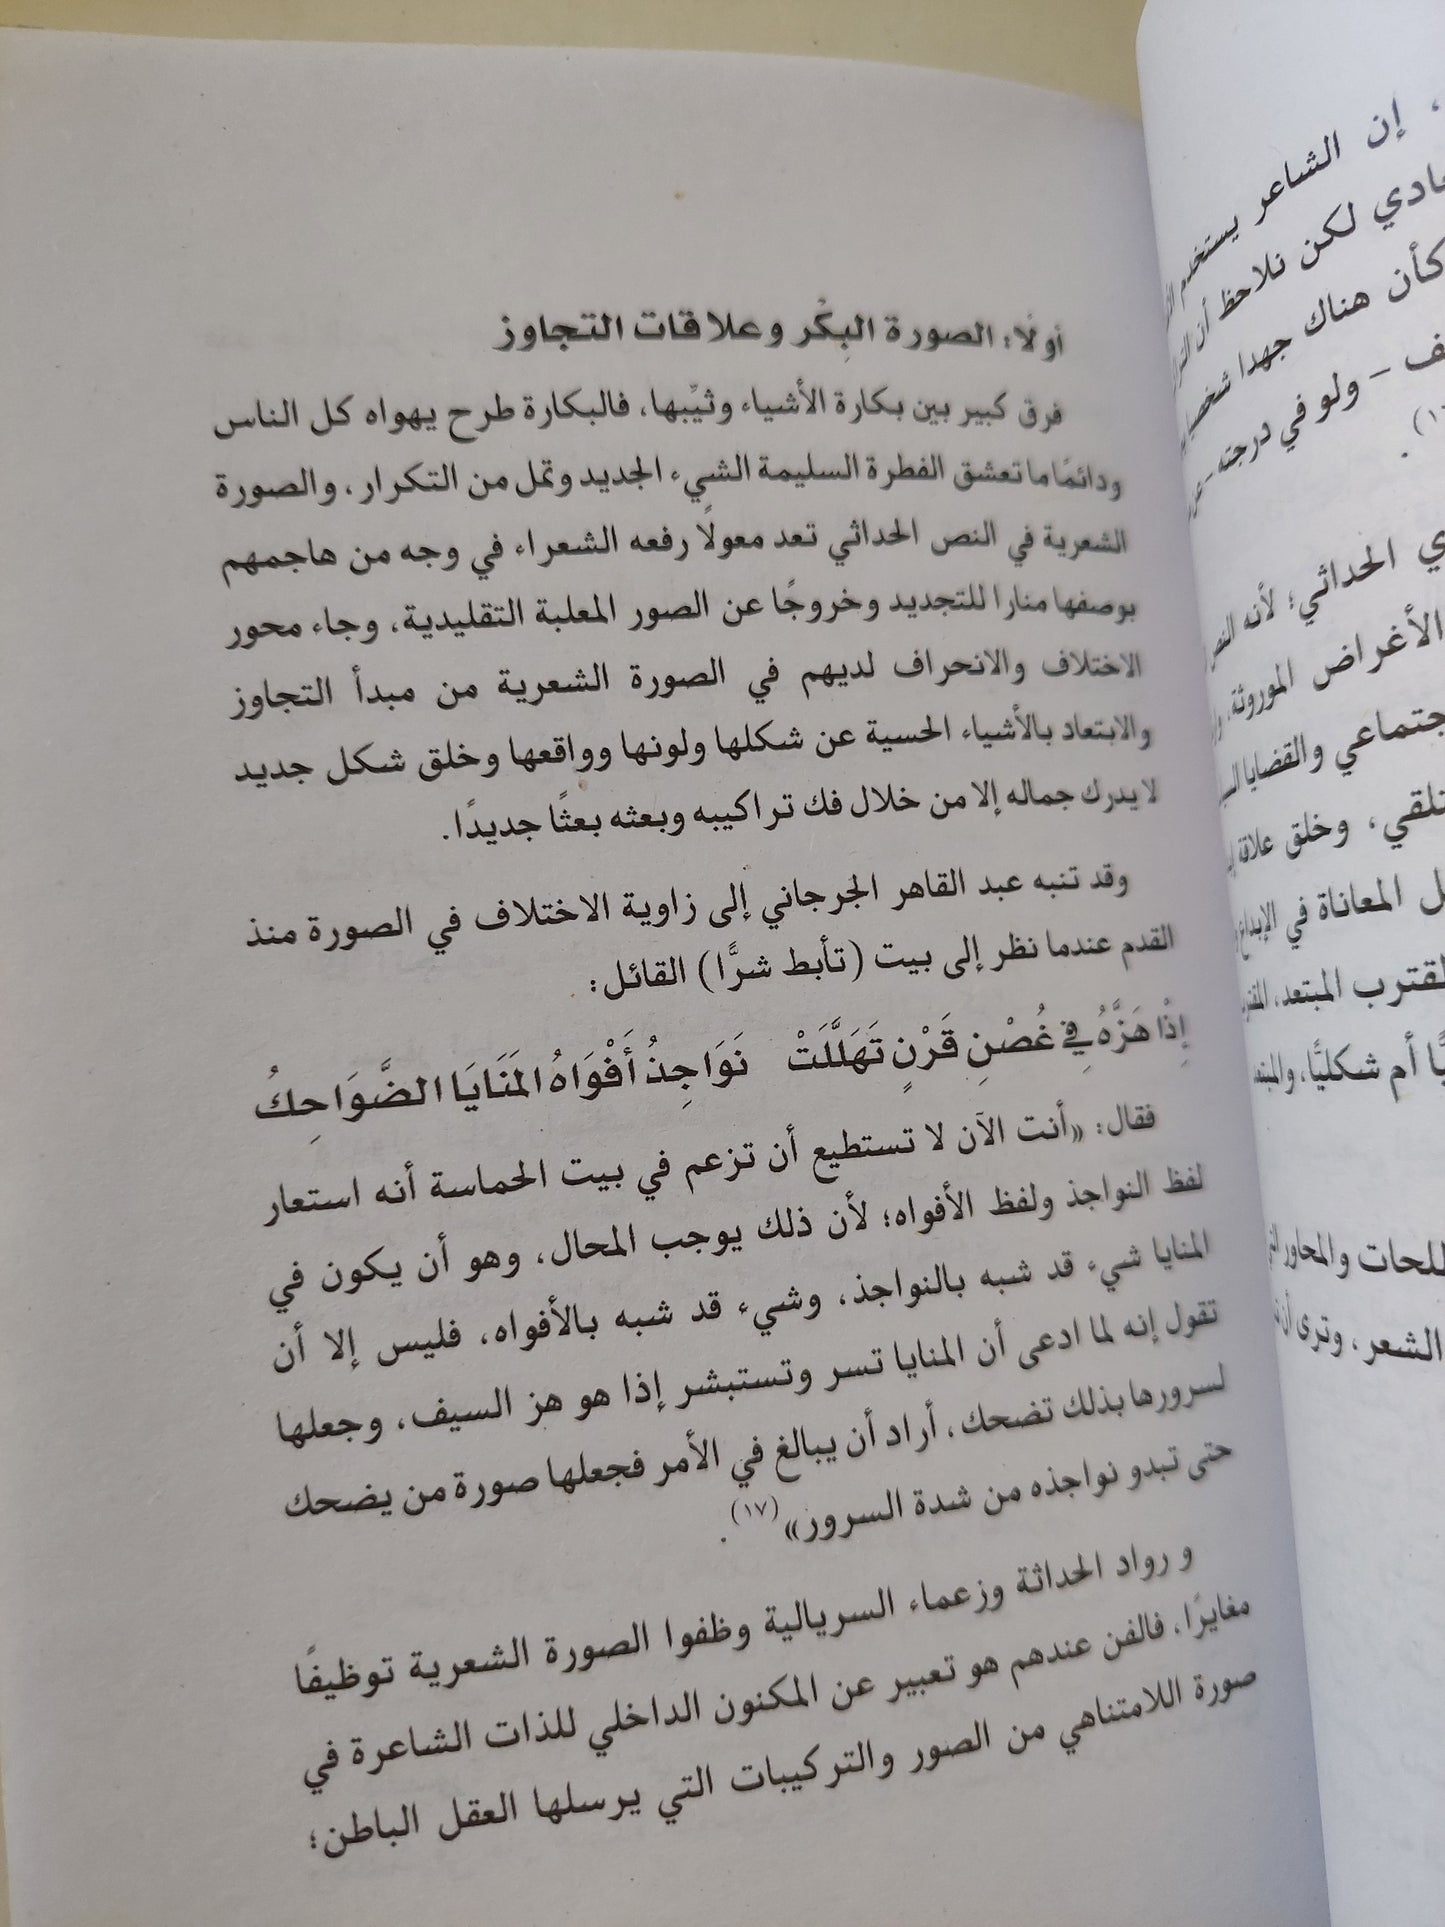 أولًا: الصورة البِكْر وعلاقات التجاوز
فرق كبير بين بكارة الأشياء وثيِّبها، فالبكارة طرح يهواه كل الناس
ودائمًا ما تعشق الفطرة السليمة الشيء الجديد وتمل من التكرار، والصورة
الشعرية في النص الحداثي تعد معولًا رفعه الشعراء في وجه من هاجمهم
بوصفها منارا للتجديد وخروجًا عن الصور المعلبة التقليدية، وجاء محور
الاختلاف والانحراف لديهم في الصورة الشعرية من مبدأ التجاوز
والابتعاد بالأشياء الحسية عن شكلها ولونها وواقعها وخلق شكل جديد
لا يدرك جماله إلا من خلال فك تراكيبه وبعثه بعثًا جديدًا.
وقد تنبه عبد القاهر الجرجاني إلى زاوية الاختلاف في الصورة منذ
القدم عندما نظر إلى بيت (تأبط شرًّا) القائل:
إِذَا هَزَّهُ فِي غُصْنِ قَرْنٍ تَهَلَّلَتْ نَوَاجِذُ أَفْوَاهُ المَنَايَا الضَّوَاحِكُ
فقال: «أنت الآن لا تستطيع أن تزعم في بيت الحماسة أنه استعار
لفظ النواجذ ولفظ الأفواه؛ لأن ذلك يوجب المحال، وهو أن يكون في
المنايا شيء قد شبه بالنواجذ، وشيء قد شبه بالأفواه، فليس إلا أن
تقول إنه لما ادعى أن المنايا تسر وتستبشر إذا هو هز السيف، وجعلها
لسرورها بذلك تضحك، أراد أن يبالغ في الأمر فجعلها صورة من يضحك
حتى تبدو نواجذه من شدة السرور»(١٧).
و رواد الحداثة وزعماء السريالية وظفوا الصورة الشعرية توظيفًا
مغايرًا، فالفن عندهم هو تعبير عن المكنون الداخلي للذات الشاعرة في
صورة اللامتناهي من الصور والتركيبات التي يرسلها العقل الباطن؛
، إن الشاعر يستخدم
لكن نلاحظ أن
كأن هناك جهدا
– ولو في درجته –
الحداثي؛ لأنه النص
الأغراض الموروثة،
والقضايا
، وخلق علاقة
المعاناة في الإبداع
المبتعد،
أم شكليًا، والمبتعد
والمحاور
الشعر، وترى أن